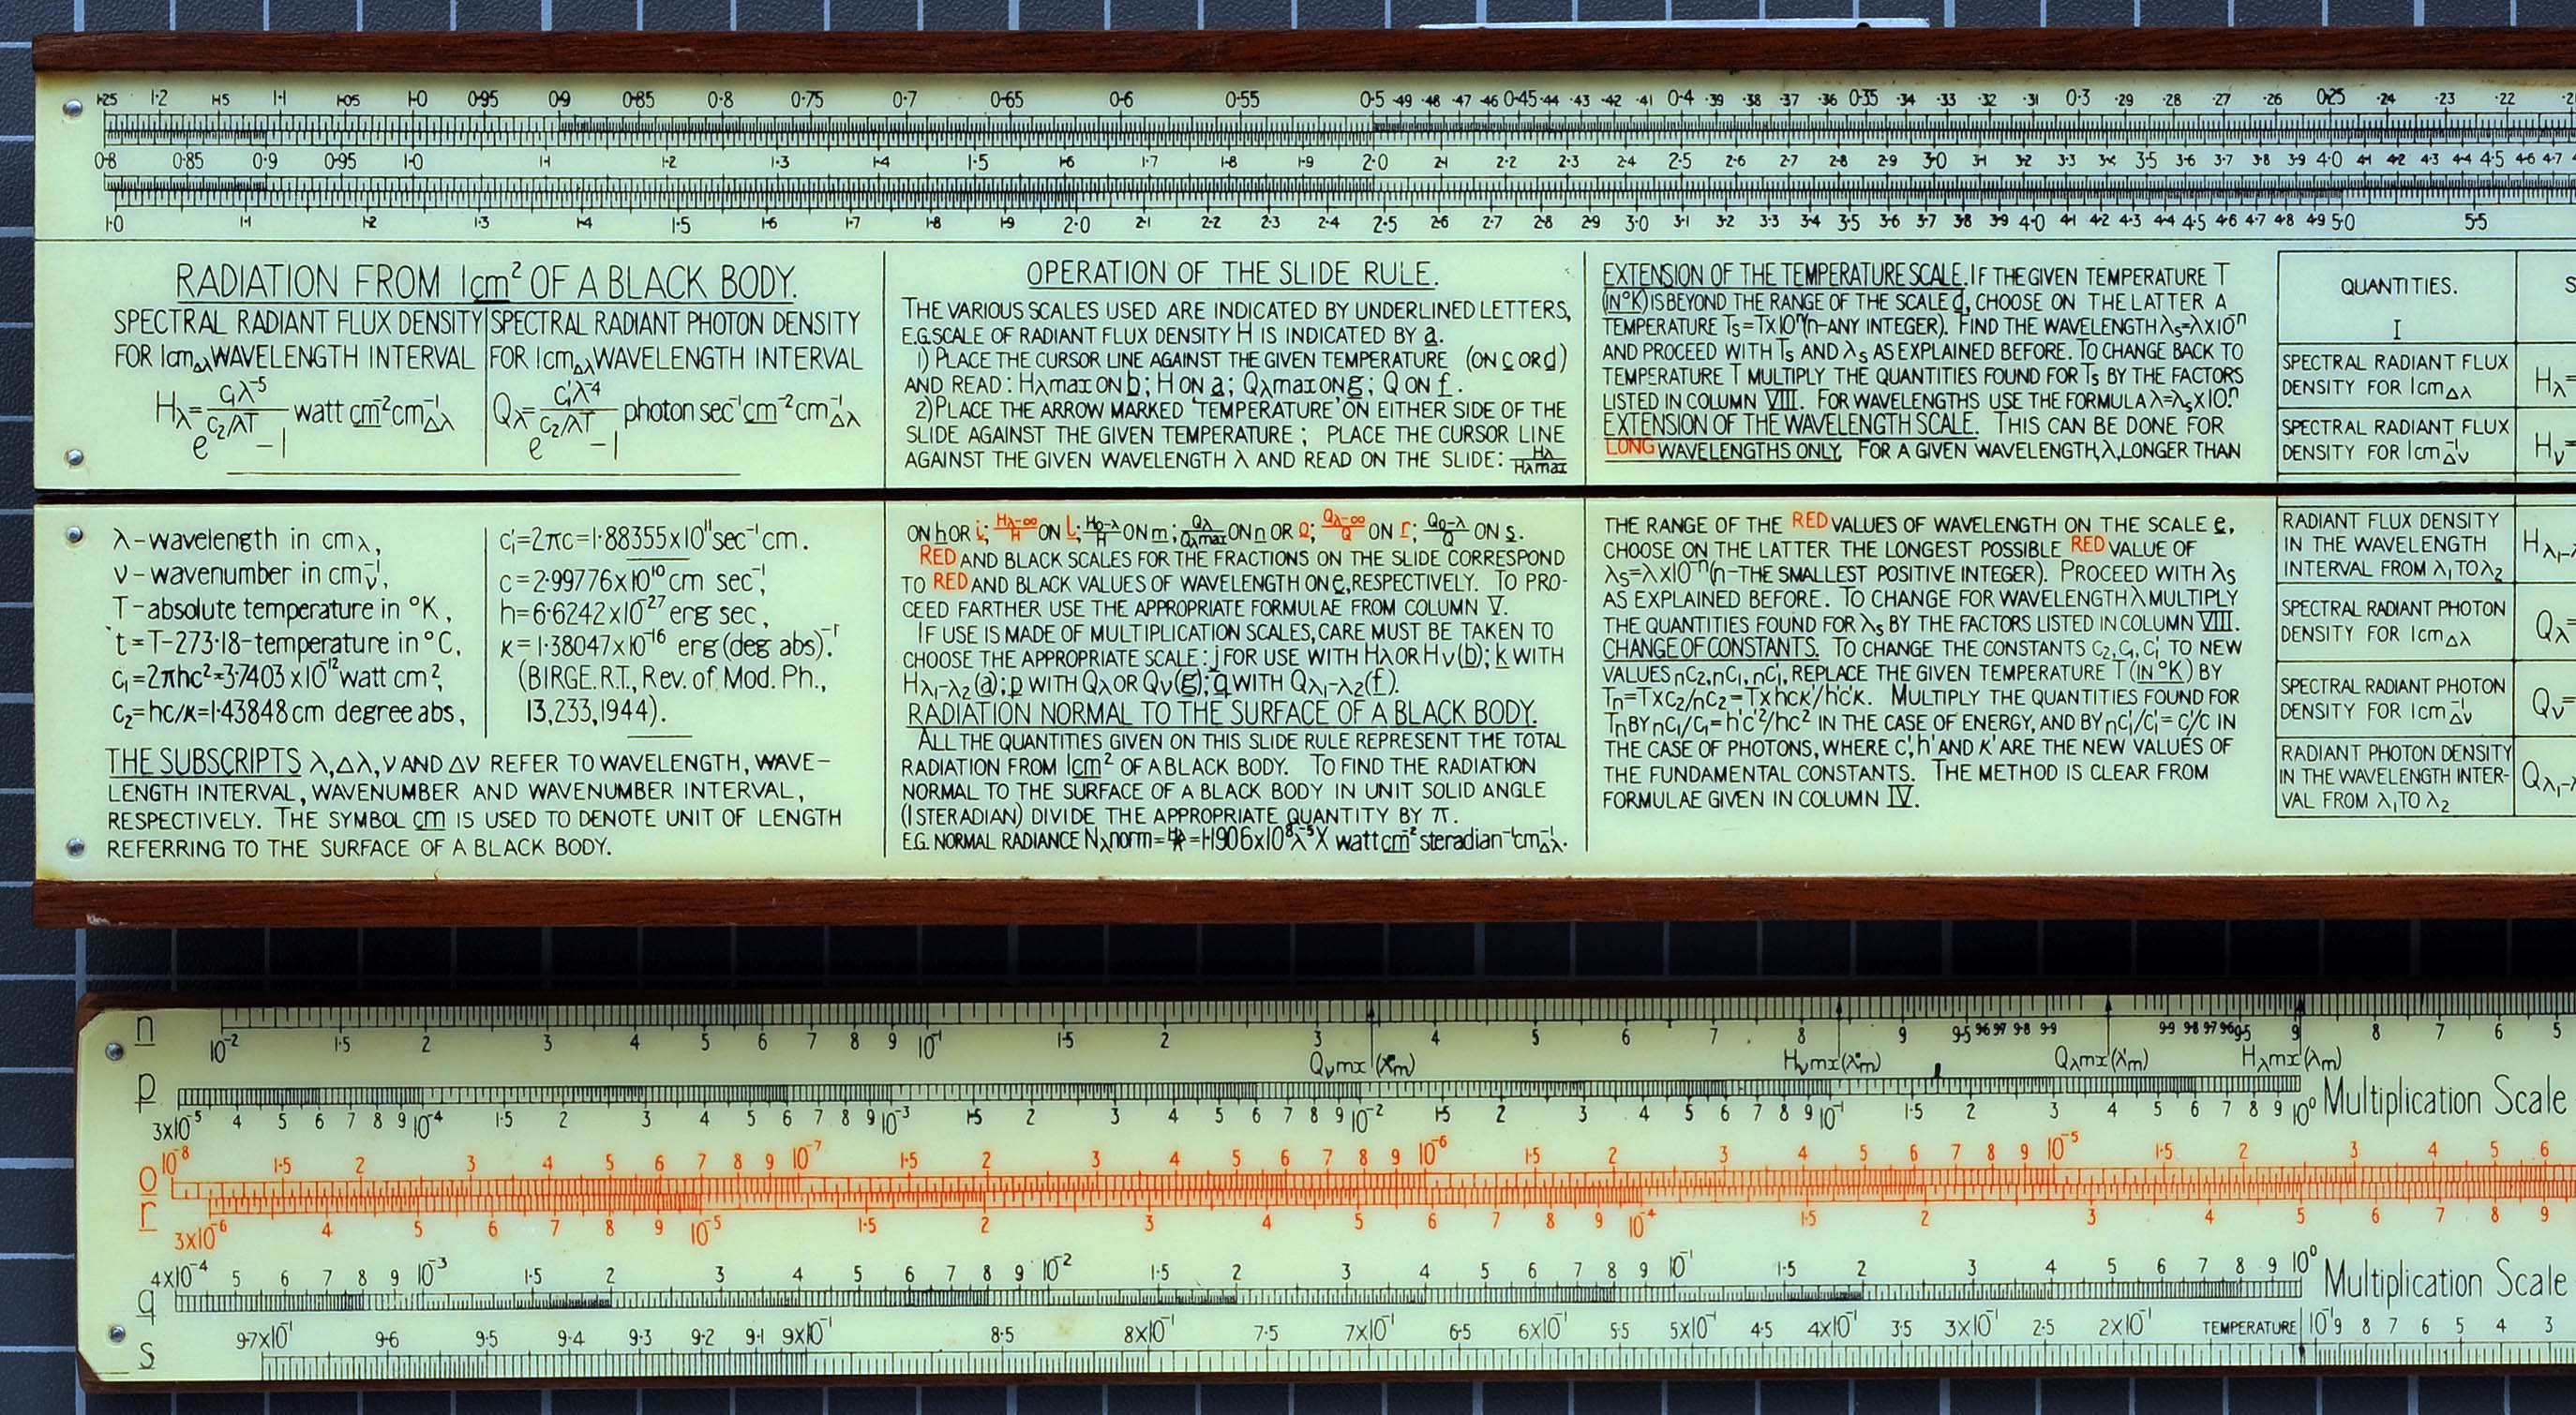 1·25 1·2 1·15 1·1 1·05 1·0 0·95 0·9 0·85 0·8 0·75 0·7 0·65 0·6 0·55 0·5 ·49 ·48 ·47 ·46 0·45 ·44 ·43 ·42 ·41 0·4 ·39 ·38 ·37 ·36 0·35 ·34 ·33 ·32 ·31 0·3 ·29 ·28 ·27 ·26 0·25 ·24 ·23 ·22
0·8 0·85 0·9 0·95 1·0 1·1 1·2 1·3 1·4 1·5 1·6 1·7 1·8 1·9 2·0 2·1 2·2 2·3 2·4 2·5 2·6 2·7 2·8 2·9 3·0 3·1 3·2 3·3 3·4 3·5 3·6 3·7 3·8 3·9 4·0 4·1 4·2 4·3 4·4 4·5 4·6 4·7
1·0 1·1 1·2 1·3 1·4 1·5 1·6 1·7 1·8 1·9 2·0 2·1 2·2 2·3 2·4 2·5 2·6 2·7 2·8 2·9 3·0 3·1 3·2 3·3 3·4 3·5 3·6 3·7 3·8 3·9 4·0 4·1 4·2 4·3 4·4 4·5 4·6 4·7 4·8 4·9 5·0 5·5
RADIATION FROM 1cm² OF A BLACK BODY.
SPECTRAL RADIANT FLUX DENSITY
FOR 1cm_Δλ WAVELENGTH INTERVAL
H_λ = c₁λ⁻⁵ / (e^(c₂/λT) −1) watt cm⁻² cm⁻¹_Δλ
SPECTRAL RADIANT PHOTON DENSITY
FOR 1cm_Δλ WAVELENGTH INTERVAL
Q_λ = c₁'λ⁻⁴ / (e^(c₂/λT) −1) photon sec⁻¹ cm⁻² cm⁻¹_Δλ
λ – wavelength in cm_λ,
ν – wavenumber in cm⁻¹_ν,
T – absolute temperature in °K,
t = T–273·18–temperature in °C,
c₁ = 2πhc² = 3·7403 x10⁻¹² watt cm²,
c₂ = hc/κ = 1·43848 cm degree abs,
c₁' = 2πc = 1·88355x10¹¹ sec⁻¹ cm.
c = 2·99776x10¹⁰ cm sec⁻¹,
h = 6·6242x10⁻²⁷ erg sec,
κ = 1·38047x10⁻¹⁶ erg (deg abs)⁻¹.
(BIRGE. R.T., Rev. of Mod. Ph.,
13, 233, 1944).
THE SUBSCRIPTS λ, Δλ, ν AND Δν REFER TO WAVELENGTH, WAVE–
LENGTH INTERVAL, WAVENUMBER AND WAVENUMBER INTERVAL,
RESPECTIVELY. THE SYMBOL cm IS USED TO DENOTE UNIT OF LENGTH
REFERRING TO THE SURFACE OF A BLACK BODY.
OPERATION OF THE SLIDE RULE.
THE VARIOUS SCALES USED ARE INDICATED BY UNDERLINED LETTERS,
E.G. SCALE OF RADIANT FLUX DENSITY H IS INDICATED BY a.
1) PLACE THE CURSOR LINE AGAINST THE GIVEN TEMPERATURE (ON c OR d)
AND READ : Hλmax ON b; H ON a; Qλmax ON g; Q ON f.
2) PLACE THE ARROW MARKED 'TEMPERATURE' ON EITHER SIDE OF THE
SLIDE AGAINST THE GIVEN TEMPERATURE ; PLACE THE CURSOR LINE
AGAINST THE GIVEN WAVELENGTH λ AND READ ON THE SLIDE: Hλ/Hλmax
ON h OR i; Hλ-∞/H ON l; H0-λ/H ON m; Qλ/Qλmax ON n OR o; Qλ-∞/Q ON r; Q0-λ/Q ON s.
RED AND BLACK SCALES FOR THE FRACTIONS ON THE SLIDE CORRESPOND
TO RED AND BLACK VALUES OF WAVELENGTH ON e, RESPECTIVELY. TO PRO-
CEED FARTHER USE THE APPROPRIATE FORMULAE FROM COLUMN V.
IF USE IS MADE OF MULTIPLICATION SCALES, CARE MUST BE TAKEN TO
CHOOSE THE APPROPRIATE SCALE: j FOR USE WITH Hλ OR Hν (b); k WITH
Hλ₁-λ₂ (a); p WITH Qλ OR Qν (g); q WITH Qλ₁-λ₂ (f).
RADIATION NORMAL TO THE SURFACE OF A BLACK BODY.
ALL THE QUANTITIES GIVEN ON THIS SLIDE RULE REPRESENT THE TOTAL
RADIATION FROM 1cm² OF A BLACK BODY. TO FIND THE RADIATION
NORMAL TO THE SURFACE OF A BLACK BODY IN UNIT SOLID ANGLE
(1 STERADIAN) DIVIDE THE APPROPRIATE QUANTITY BY π.
E.G. NORMAL RADIANCE Nλnorm = = 1·1906x10⁸λ⁻⁵X watt cm⁻² steradian⁻¹ cm⁻¹_Δλ.
EXTENSION OF THE TEMPERATURE SCALE. IF THE GIVEN TEMPERATURE T
(IN °K) IS BEYOND THE RANGE OF THE SCALE d, CHOOSE ON THE LATTER A
TEMPERATURE Ts=Tx10ⁿ (n–ANY INTEGER). FIND THE WAVELENGTH λs=λx10⁻ⁿ
AND PROCEED WITH Ts AND λs AS EXPLAINED BEFORE. TO CHANGE BACK TO
TEMPERATURE T MULTIPLY THE QUANTITIES FOUND FOR Ts BY THE FACTORS
LISTED IN COLUMN VIII. FOR WAVELENGTHS USE THE FORMULA λ=λsx10ⁿ.
EXTENSION OF THE WAVELENGTH SCALE. THIS CAN BE DONE FOR
LONG WAVELENGTHS ONLY. FOR A GIVEN WAVELENGTH, λ, LONGER THAN
THE RANGE OF THE RED VALUES OF WAVELENGTH ON THE SCALE e,
CHOOSE ON THE LATTER THE LONGEST POSSIBLE RED VALUE OF
λs=λx10⁻ⁿ (n–THE SMALLEST POSITIVE INTEGER). PROCEED WITH λs
AS EXPLAINED BEFORE. TO CHANGE FOR WAVELENGTH λ MULTIPLY
THE QUANTITIES FOUND FOR λs BY THE FACTORS LISTED IN COLUMN VIII.
CHANGE OF CONSTANTS. TO CHANGE THE CONSTANTS c₂, c₁, c₁' TO NEW
VALUES nc₂, nc₁, nc₁', REPLACE THE GIVEN TEMPERATURE T (IN °K) BY
Tn=Txc₂/nc₂=Txhcκ'/h'c'κ. MULTIPLY THE QUANTITIES FOUND FOR
Tn BY nc₁/c₁=h'c'²/hc² IN THE CASE OF ENERGY, AND BY nc₁'/c₁'=c'/c IN
THE CASE OF PHOTONS, WHERE c', h' AND κ' ARE THE NEW VALUES OF
THE FUNDAMENTAL CONSTANTS. THE METHOD IS CLEAR FROM
FORMULAE GIVEN IN COLUMN IV.
QUANTITIES.
I
SPECTRAL RADIANT FLUX
DENSITY FOR 1cm_Δλ
Hλ=
SPECTRAL RADIANT FLUX
DENSITY FOR 1cm⁻¹_Δν
Hν=
RADIANT FLUX DENSITY
IN THE WAVELENGTH
INTERVAL FROM λ₁ TO λ₂
SPECTRAL RADIANT PHOTON
DENSITY FOR 1cm_Δλ
Qλ=
SPECTRAL RADIANT PHOTON
DENSITY FOR 1cm⁻¹_Δν
Qν=
RADIANT PHOTON DENSITY
IN THE WAVELENGTH INTER-
VAL FROM λ₁ TO λ₂
n 10⁻² 1·5 2 3 4 5 6 7 8 9 10⁻¹ 1·5 2 3 4 5 6 7 8 9 9·5 9·6 9·7 9·8 9·9 9·9 9·8 9·7 9·6 9·5 9 8 7 6 5
Qνmx (λm) Hνmx (λm) Qλmx (λ'm) Hλmx (λm)
p 3x10⁻⁵ 4 5 6 7 8 9 10⁻⁴ 1·5 2 3 4 5 6 7 8 9 10⁻³ 1·5 2 3 4 5 6 7 8 9 10⁻² 1·5 2 3 4 5 6 7 8 9 10⁻¹ 1·5 2 3 4 5 6 7 8 9 10⁰ Multiplication Scale
o 10⁻⁸ 1·5 2 3 4 5 6 7 8 9 10⁻⁷ 1·5 2 3 4 5 6 7 8 9 10⁻⁶ 1·5 2 3 4 5 6 7 8 9 10⁻⁵ 1·5 2 3 4 5 6
r 3x10⁻⁶ 4 5 6 7 8 9 10⁻⁵ 1·5 2 3 4 5 6 7 8 9 10⁻⁴ 1·5 2 3 4 5 6 7 8 9
q 4x10⁻⁴ 5 6 7 8 9 10⁻³ 1·5 2 3 4 5 6 7 8 9 10⁻² 1·5 2 3 4 5 6 7 8 9 10⁻¹ 1·5 2 3 4 5 6 7 8 9 10⁰ Multiplication Scale
s 9·7x10⁻¹ 9·6 9·5 9·4 9·3 9·2 9·1 9x10⁻¹ 8·5 8x10⁻¹ 7·5 7x10⁻¹ 6·5 6x10⁻¹ 5·5 5x10⁻¹ 4·5 4x10⁻¹ 3·5 3x10⁻¹ 2·5 2x10⁻¹ TEMPERATURE 10⁻¹ 9 8 7 6 5 4 3